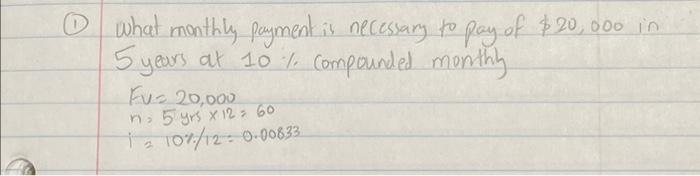 ① What monthly payment is necessary to pay of $20,000 in
5 years at 10 % compounded monthly
FV = 20,000
n = 5 yrs x 12 = 60
i = 10%/12 = 0.00833